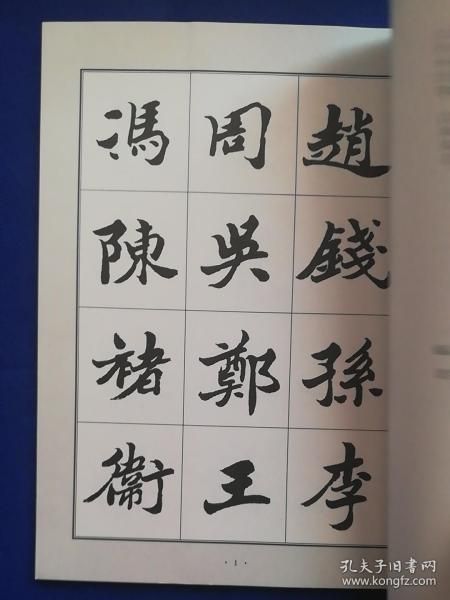 趙錢孫李
周吳鄭王
馮陳褚衞
·1·
孔夫子旧书网
www.kongfz.com